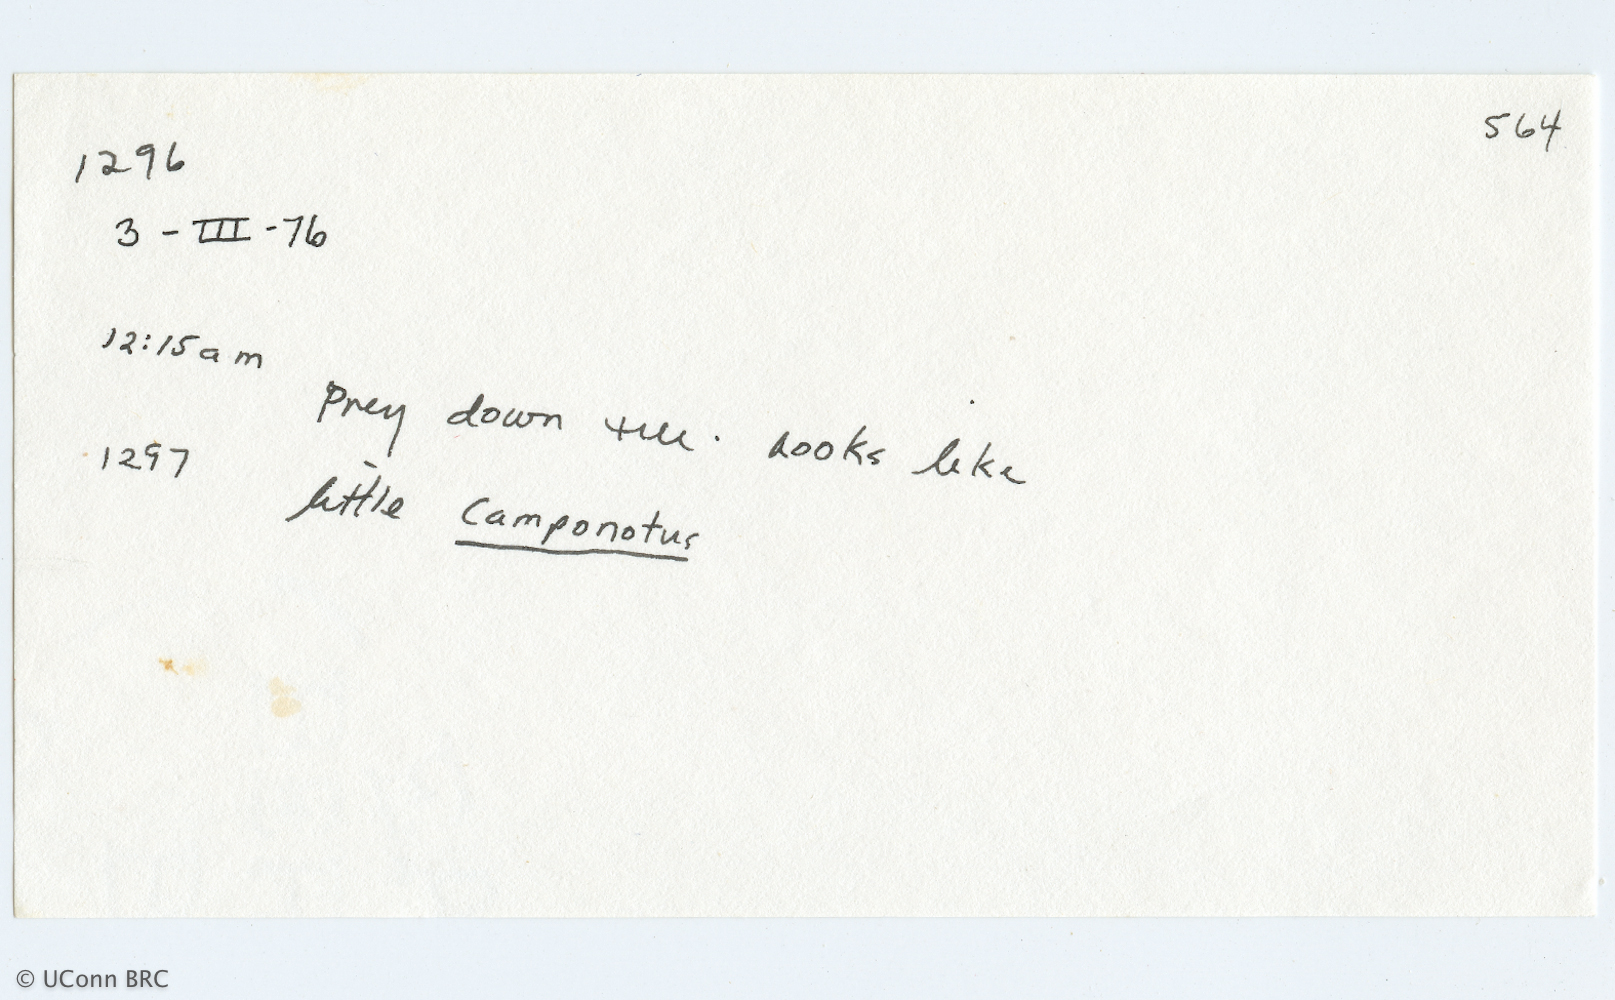 564
1296
3-III-76
12:15am
Prey down tree. Looks like
1297
little Camponotus
© UConn BRC